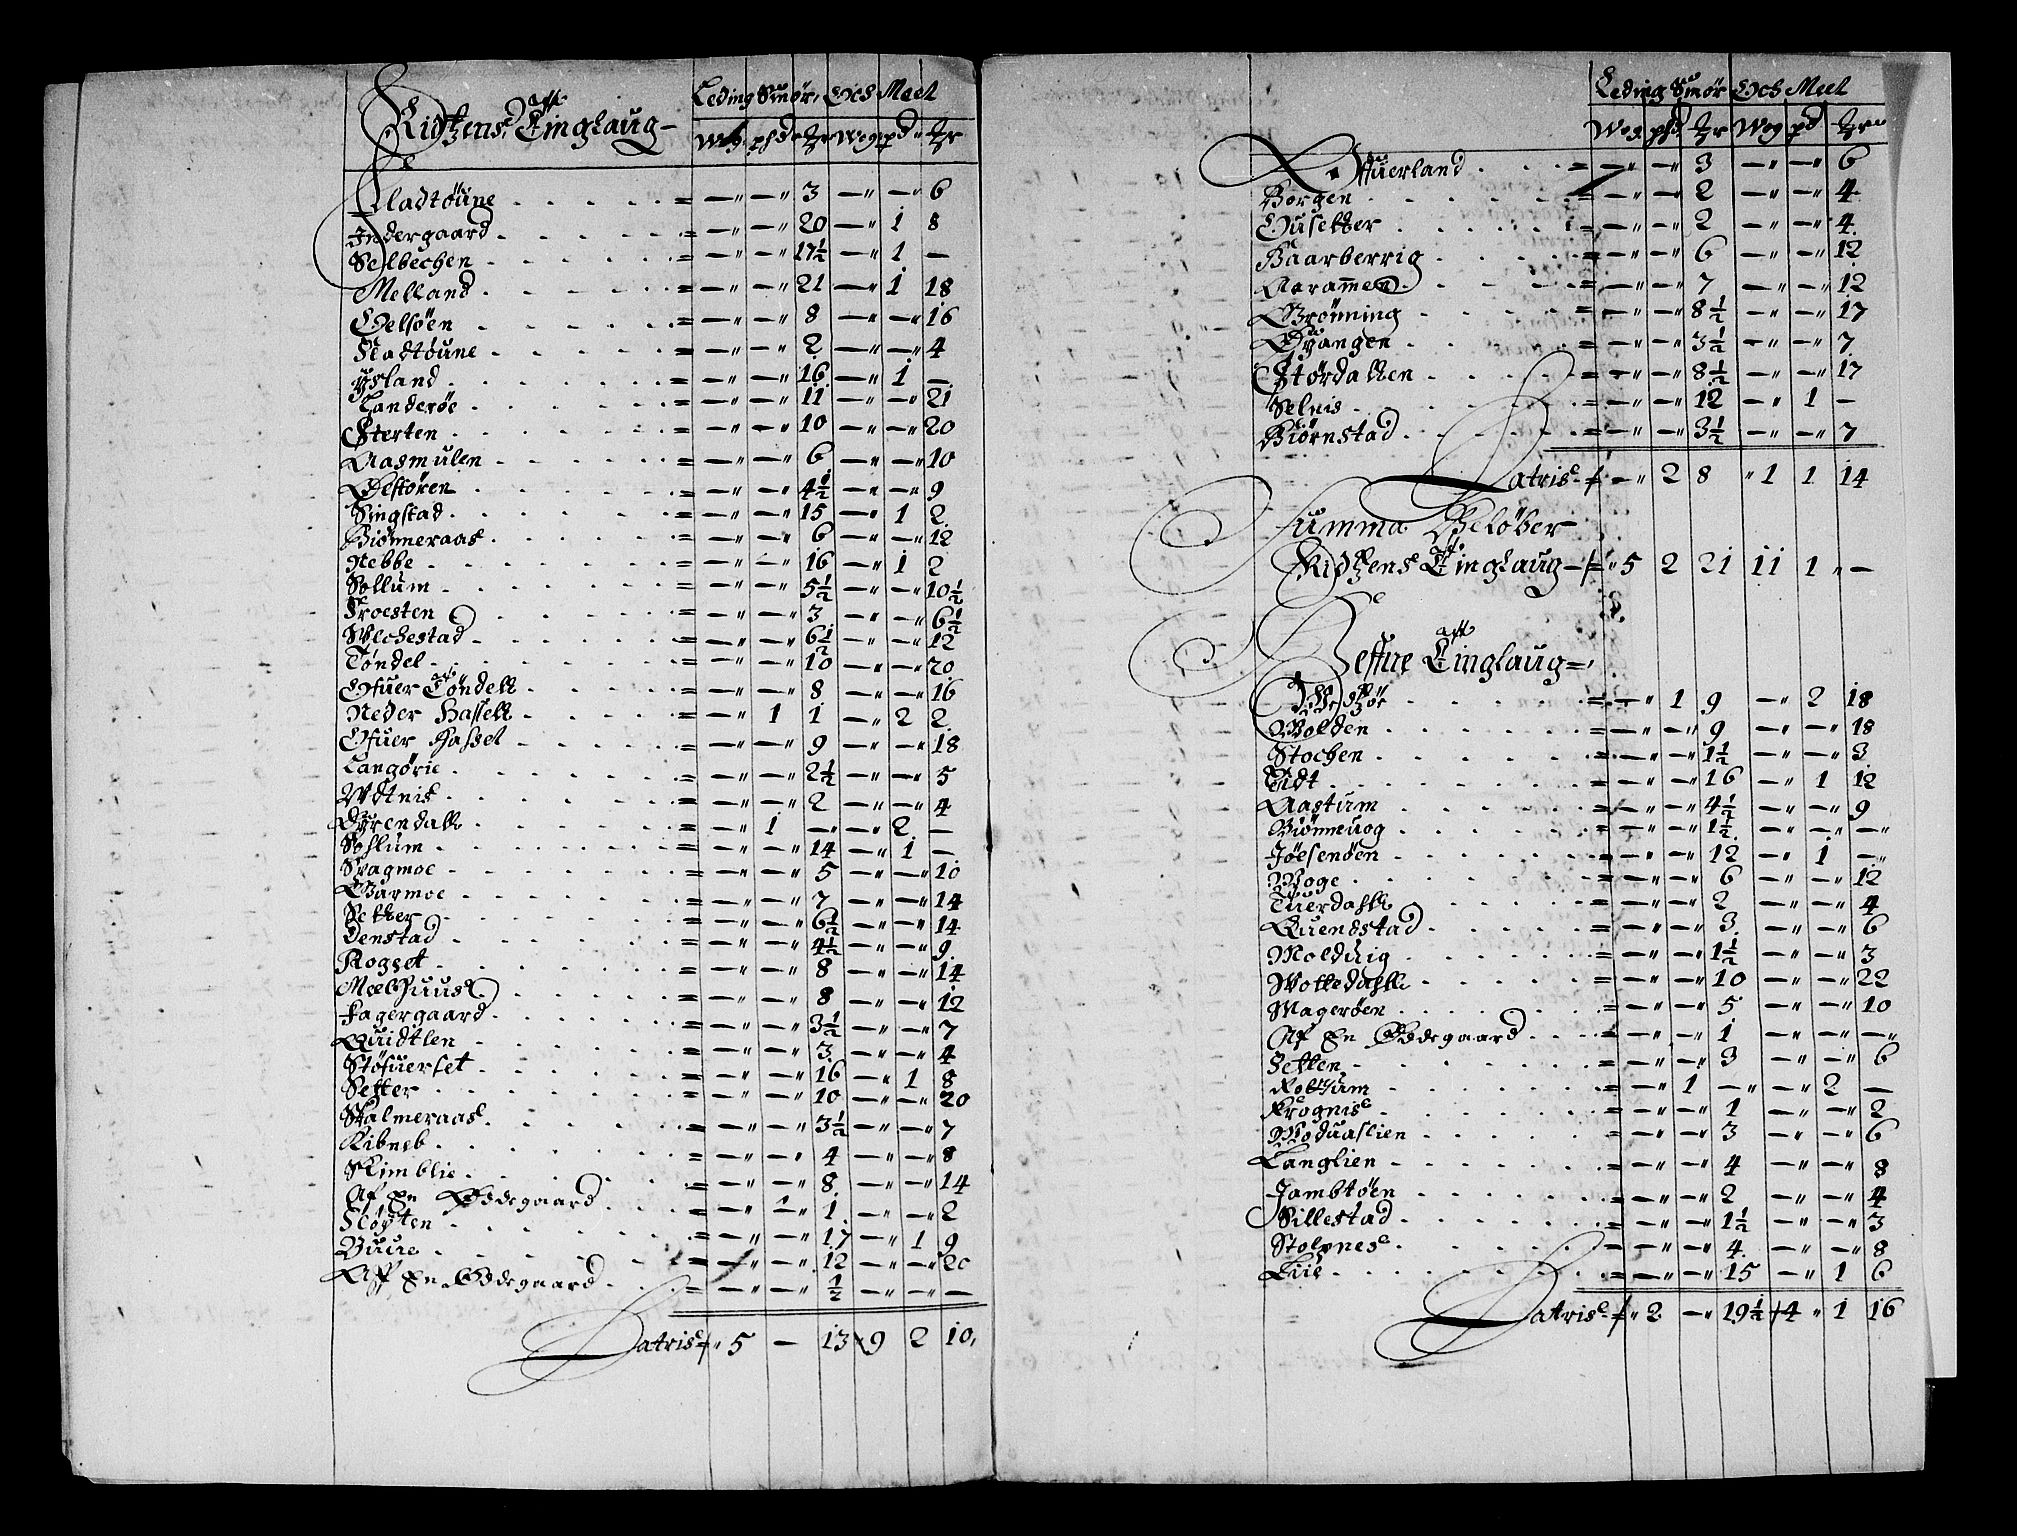 Ridzens Tinglaug Leding Smör, Och Meel
Wog. phd. tr Wog pd. tr
Fladtöune = — — 3 — — 6
Indergaard = — — 20 — 1 8
Selbechen = — — 17½ — 1 —
Melland = — — 21 — 1 18
Eelsöen = — — 8 — — 16
Fladtöune = — — 2 — — 4
Ysland = — — 16 — 1 —
Landeröe = — — 11 — — 21
Sterten = — — 10 — — 20
Aasmulen = — — 6 — — 10
= — — 4½ — — 9
Singstad = — — 15 — 1 2
Biönneraas = — — 6 — — 12
Nebbe = — — 16 — 1 2
Sollum = — — 5½ — — 10½
Froesten = — — 3 — — 6½
Wlchestad = — — 6½ — — 12
Töndel = — — 10 — — 20
Ofuer Töndell = — — 8 — — 16
Neder Hassell = — 1 1 — 2 2
Ofuer Hasset = — — 9 — — 18
Langörie = — — 2½ — — 5
Wdtnis = — — 2 — — 4
Dyrendall = — 1 — — 2 —
Sohlum = — — 14 — 1 —
Svagmoe = — — 5 — — 10
Garmoe = — — 7 — — 14
Setter = — — 6½ — — 14
Denstad = — — 4½ — — 9
Rogset = — — 8 — — 14
Melhuus = — — 8 — — 12
Fagergaard = — — 3½ — — 7
Quidtlen = — — 3 — — 4
Stöfuerset = — — 16 — 1 8
Setter = — — 10 — — 20
Skalmeraas = — — 3½ — — 7
Kibneb = — — 4 — — 8
Kimblie = — — 8 — — 14
Af En Ödegaard = — — 1 — — 2
Flöyten = — — 17 — 1 9
Buue = — — 12 — — 20
Af En Ödegaard = — — ½ — — —
Latris 5 — 13 9 2 10
Leding Smör Och Meel
Wog. phd. tr Wog pd tr
Offuerland = — — 3 — — 6
Borgen = — — 2 — — 4
Ousetter = — — 2 — — 4
Baarberrig = — — 6 — — 12
Aaramen = — — 7 — — 12
Grönning = — — 8½ — — 17
Ödvangen = — — 3½ — — 7
Stördallen = — — 8½ — — 17
Selnis = — — 12 — 1 —
Biörnstad = — — 3½ — — 7
Latris — 2 8 1 1 14
Summa Belöber
Ridzens Tinglaug 5 2 21 11 1 —
Heffne Tinglaug
= — 1 9 — 2 18
Wolden = — — 9 — — 18
Stochen = — — 1½ — — 3
Eidt = — — 16 — 1 12
Aastum = — — 4½ — — 9
Biönnuog = — — 1½ — — —
Jöesenöen = — — 12 — 1 —
Woge = — — 6 — — 12
Tuerdahll = — — 2 — — 4
Quenstad = — — 3 — — 6
Molduig = — — 1½ — — 3
Wolledahll = — — 10 — — 22
Mageröen = — — 5 — — 10
Af En Ödegaard = — — 1 — — —
Setten = — — 3 — — 6
Rolhum = — 1 — — 2 —
Krognis = — — 1 — — 2
Moduaslien = — — 3 — — 6
Langlien = — — 4 — — 8
Jambtöen = — — 2 — — 4
Sillestad = — — 1½ — — 3
Stolpnes = — — 4 — — 8
Liie = — — 15 — 1 6
Latris 2 — 19½ 4 1 16